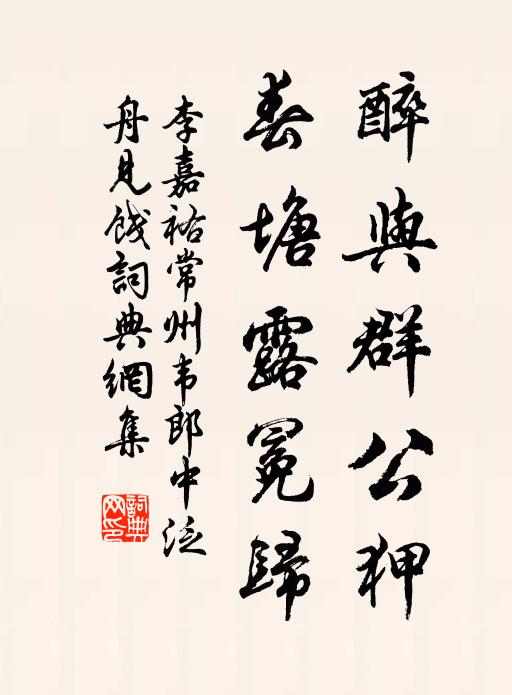 醉與群公狎
春塘露冕歸
李嘉祐常州韦郎中泛
舟見餞詞典網集
詞典
网印